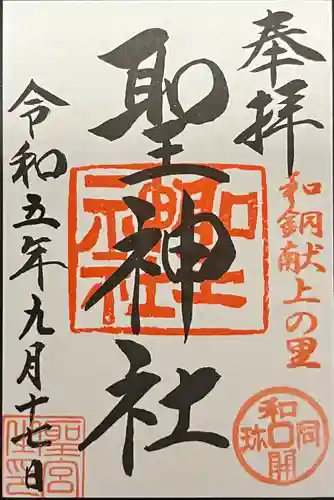 奉拝
和銅献上の里
聖神社
令和五年九月十七日
聖神社
和同開珎